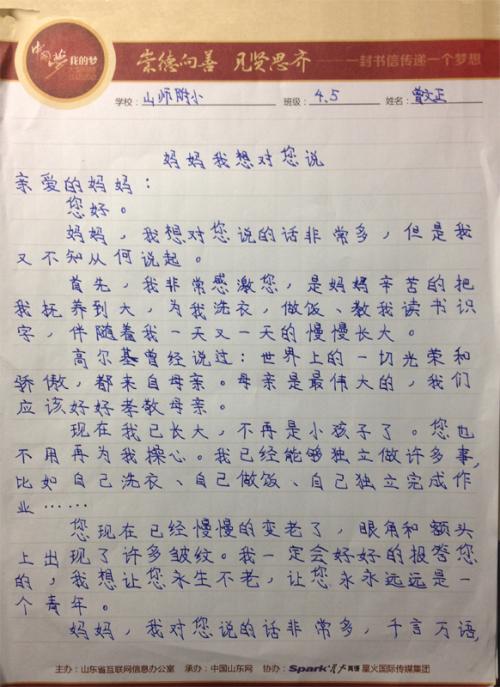 中国梦 我的梦
崇德向善 见贤思齐 一封书信传递一个梦想
学校:山师附小 班级:4.5 姓名:曾文正
妈妈我想对您说
亲爱的妈妈:
您好。
妈妈,我想对您说的话非常多,但是我
又不知从何说起。
首先,我非常感激您,是妈妈辛苦的把
我抚养到大,为我洗衣,做饭、教我读书识
字,伴随着我一天又一天的慢慢长大。
高尔基曾经说过:世界上的一切光荣和
骄傲,都来自母亲。母亲是最伟大的,我们
应该好好孝敬母亲。
现在我已长大,不再是小孩子了。您也
不用再为我操心。我已经能够独立做许多事,
比如自己洗衣、自己做饭、自己独立完成作
业……
您现在已经慢慢的变老了,眼角和额头
上出现了许多皱纹。我一定会好好的报答您
的,我想让您永生不老,让您永永远远是一
个青年。
妈妈,我对您说的话非常多,千言万语,
主办:山东省互联网信息办公室 承办:中国山东网 协办:Spark星火英语 星火国际传媒集团